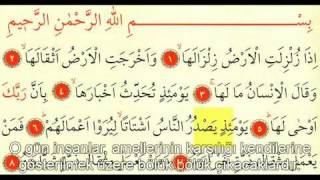 بِسْمِ اللّٰهِ الرَّحْمٰنِ الرَّحِيمِ
اِذَا زُلْزِلَتِ الْاَرْضُ زِلْزَالَهَا ١ وَاَخْرَجَتِ الْاَرْضُ اَثْقَالَهَا ٢
وَقَالَ الْاِنْسَانُ مَا لَهَا ٣ يَوْمَئِذٍ تُحَدِّثُ اَخْبَارَهَا ٤ بِاَنَّ رَبَّكَ
اَوْحٰى لَهَا ٥ يَوْمَئِذٍ يَصْدُرُ النَّاسُ اَشْتَاتًا لِيُرَوْا اَعْمَالَهُمْ ٦ فَمَنْ
O gün insanlar, amellerinin karşılığı kendilerine
gösterilmek üzere bölük bölük çıkacaklardır.